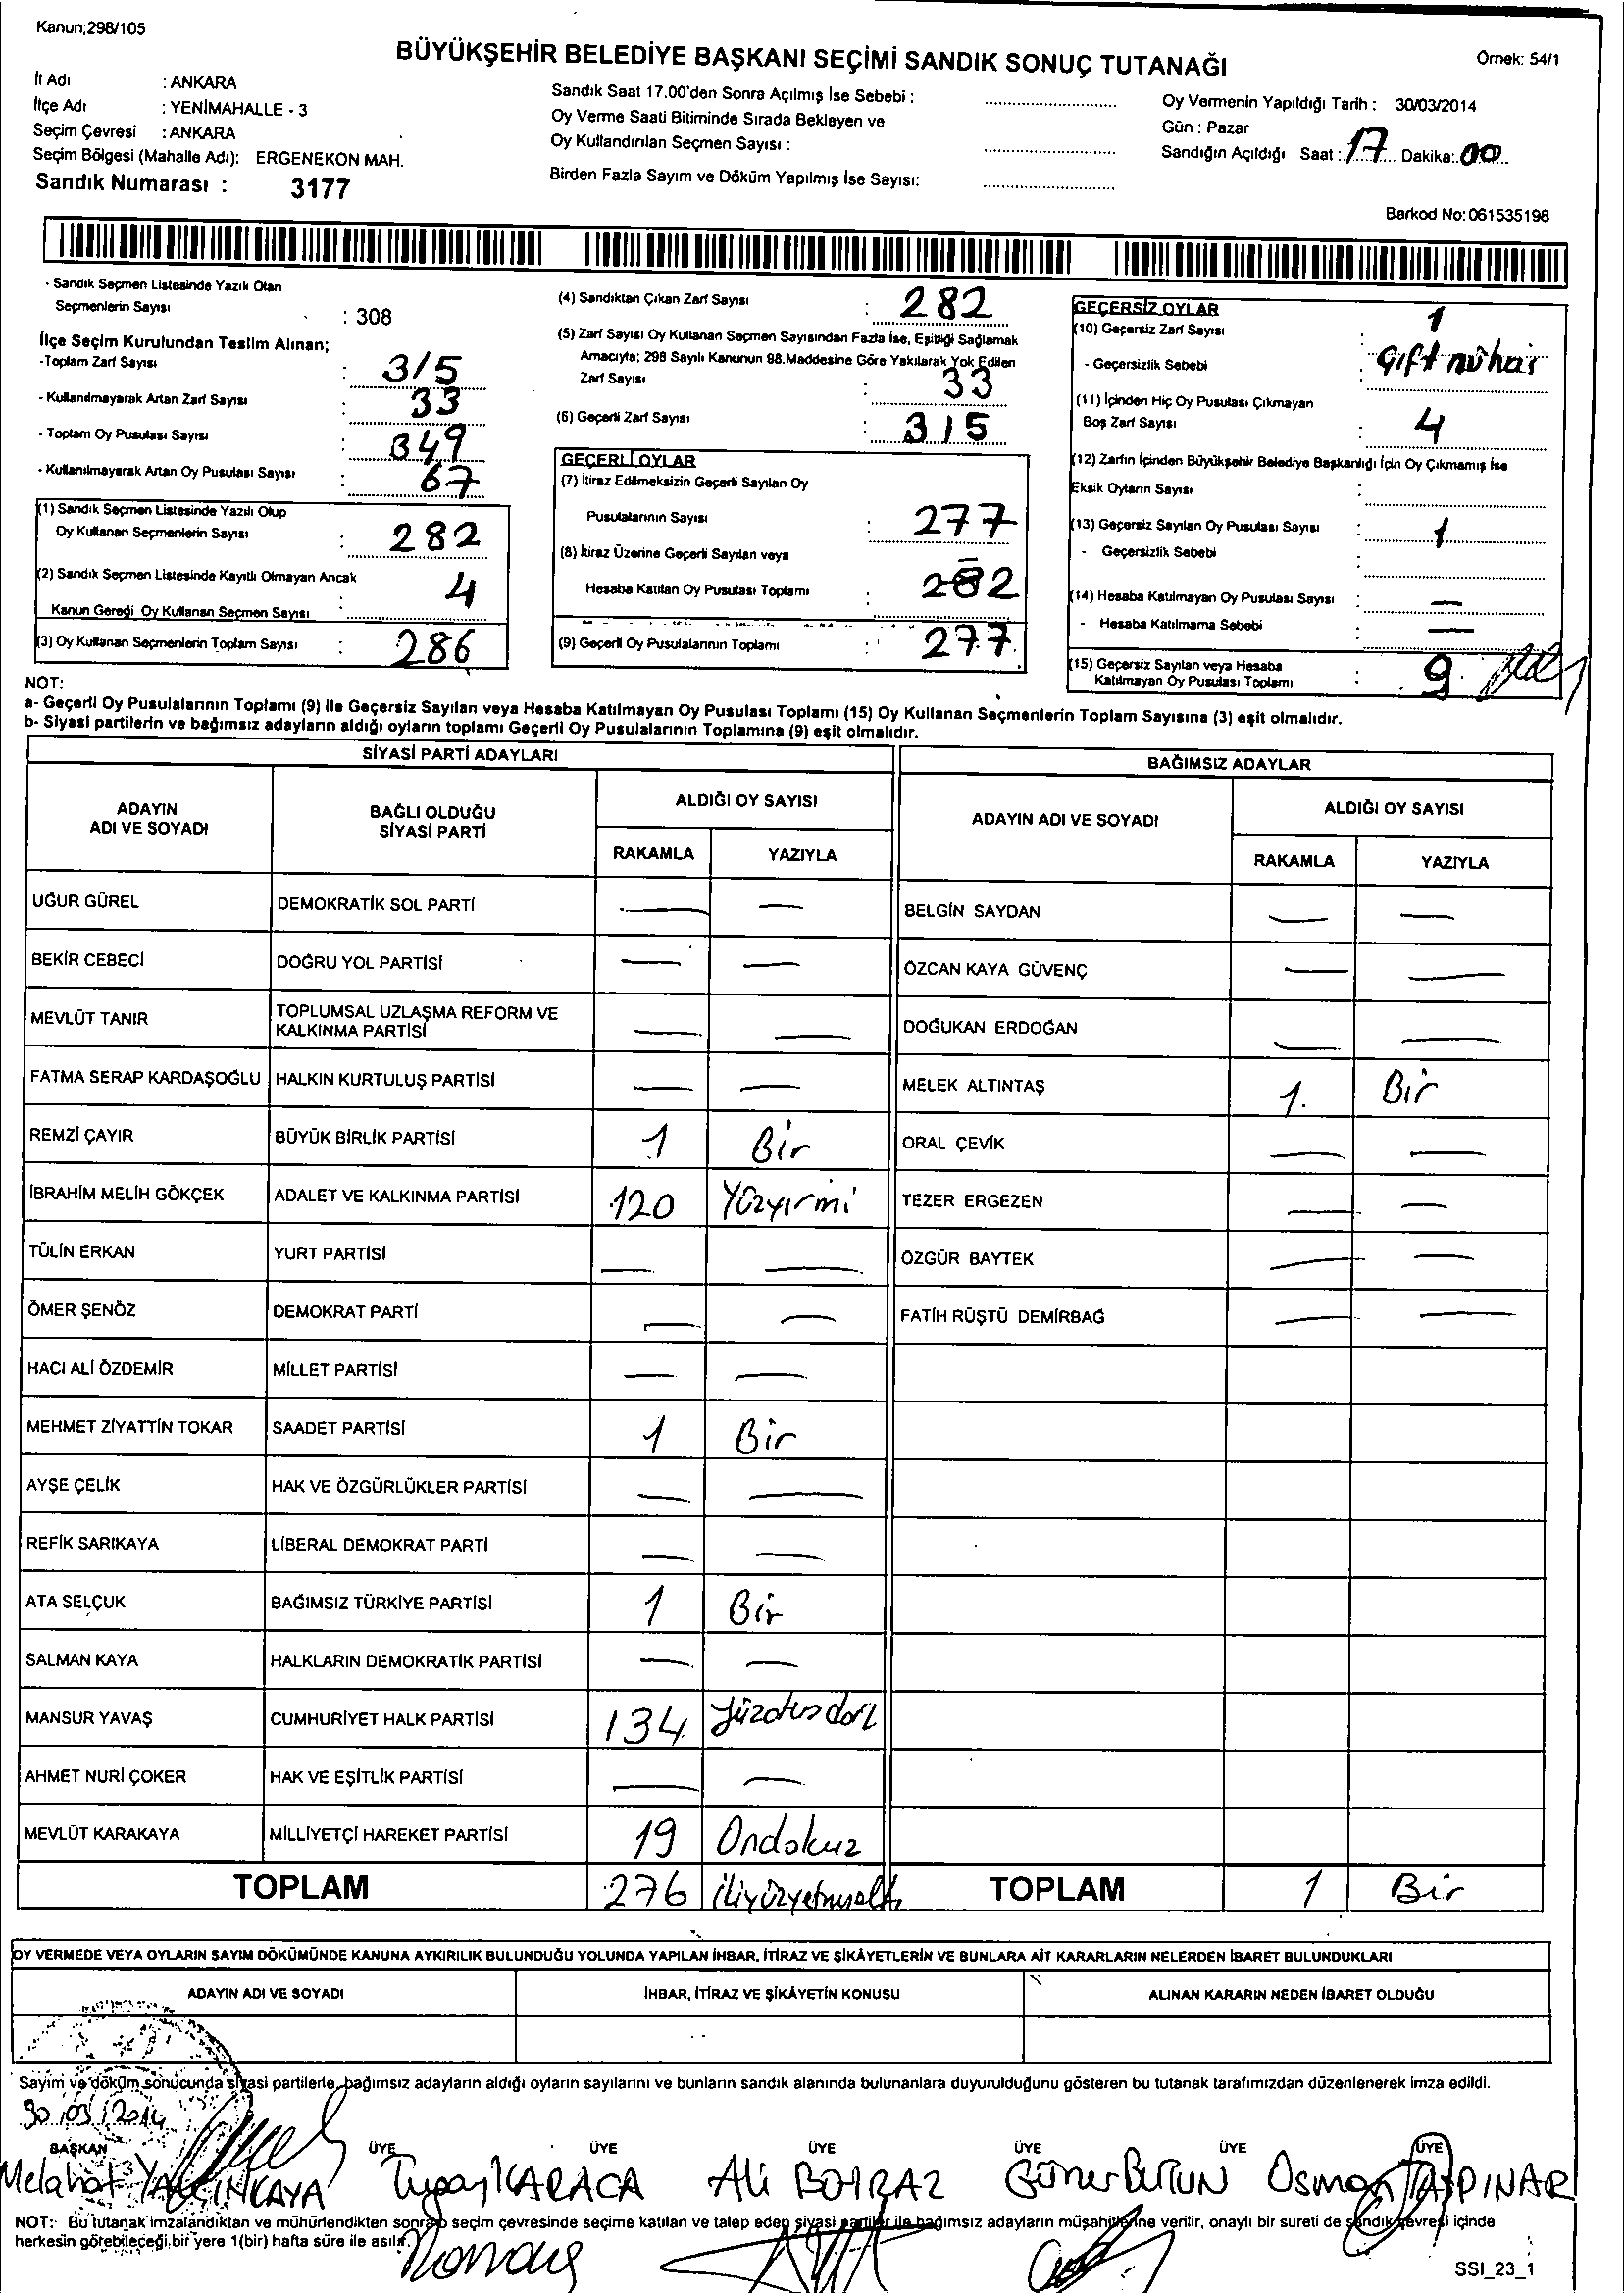 Kanun;298/105
BÜYÜKŞEHİR BELEDİYE BAŞKANI SEÇİMİ SANDIK SONUÇ TUTANAĞI
Örnek: 54/1
İl Adı : ANKARA
İlçe Adı : YENİMAHALLE - 3
Seçim Çevresi : ANKARA
Seçim Bölgesi (Mahalle Adı): ERGENEKON MAH.
Sandık Numarası : 3177
Sandık Saat 17.00'den Sonra Açılmış İse Sebebi :
Oy Verme Saati Bitiminde Sırada Bekleyen ve
Oy Kullandırılan Seçmen Sayısı :
Birden Fazla Sayım ve Döküm Yapılmış İse Sayısı:
Oy Vermenin Yapıldığı Tarih : 30/03/2014
Gün : Pazar
Sandığın Açıldığı Saat : 17 Dakika: 00
Barkod No: 061535198
- Sandık Seçmen Listesinde Yazılı Olan
Seçmenlerin Sayısı : 308
İlçe Seçim Kurulundan Teslim Alınan;
-Toplam Zarf Sayısı : 315
- Kullanılmayarak Artan Zarf Sayısı : 33
- Toplam Oy Pusulası Sayısı : 349
- Kullanılmayarak Artan Oy Pusulası Sayısı : 67
(1) Sandık Seçmen Listesinde Yazılı Olup
Oy Kullanan Seçmenlerin Sayısı : 282
(2) Sandık Seçmen Listesinde Kayıtlı Olmayan Ancak
Kanun Gereği Oy Kullanan Seçmen Sayısı : 4
(3) Oy Kullanan Seçmenlerin Toplam Sayısı : 286
(4) Sandıktan Çıkan Zarf Sayısı : 282
(5) Zarf Sayısı Oy Kullanan Seçmen Sayısından Fazla İse, Eşitliği Sağlamak
Amacıyla; 298 Sayılı Kanunun 98.Maddesine Göre Yakılarak Yok Edilen
Zarf Sayısı : 33
(6) Geçerli Zarf Sayısı : 315
GEÇERLİ OYLAR
(7) İtiraz Edilmeksizin Geçerli Sayılan Oy
Pusulalarının Sayısı : 277
(8) İtiraz Üzerine Geçerli Sayılan veya
Hesaba Katılan Oy Pusulası Toplamı : 282
(9) Geçerli Oy Pusulalarının Toplamı : 277
GEÇERSİZ OYLAR
(10) Geçersiz Zarf Sayısı : 1
- Geçersizlik Sebebi : Çift mühür
(11) İçinden Hiç Oy Pusulası Çıkmayan
Boş Zarf Sayısı : 4
(12) Zarfın İçinden Büyükşehir Belediye Başkanlığı İçin Oy Çıkmamış İse
Eksik Oyların Sayısı :
(13) Geçersiz Sayılan Oy Pusulası Sayısı : 1
- Geçersizlik Sebebi :
(14) Hesaba Katılmayan Oy Pusulası Sayısı : —
- Hesaba Katılmama Sebebi : —
(15) Geçersiz Sayılan veya Hesaba
Katılmayan Oy Pusulası Toplamı : 9
NOT:
a- Geçerli Oy Pusulalarının Toplamı (9) ile Geçersiz Sayılan veya Hesaba Katılmayan Oy Pusulası Toplamı (15) Oy Kullanan Seçmenlerin Toplam Sayısına (3) eşit olmalıdır.
b- Siyasi partilerin ve bağımsız adayların aldığı oyların toplamı Geçerli Oy Pusulalarının Toplamına (9) eşit olmalıdır.
SİYASİ PARTİ ADAYLARI
BAĞIMSIZ ADAYLAR
ADAYIN ADI VE SOYADI
BAĞLI OLDUĞU SİYASİ PARTİ
ALDIĞI OY SAYISI
RAKAMLA YAZIYLA
ADAYIN ADI VE SOYADI
ALDIĞI OY SAYISI
RAKAMLA YAZIYLA
UĞUR GÜREL DEMOKRATİK SOL PARTİ — — BELGİN SAYDAN — —
BEKİR CEBECİ DOĞRU YOL PARTİSİ — — ÖZCAN KAYA GÜVENÇ — —
MEVLÜT TANIR TOPLUMSAL UZLAŞMA REFORM VE KALKINMA PARTİSİ — — DOĞUKAN ERDOĞAN — —
FATMA SERAP KARDAŞOĞLU HALKIN KURTULUŞ PARTİSİ — — MELEK ALTINTAŞ 1. Bir
REMZİ ÇAYIR BÜYÜK BİRLİK PARTİSİ 1 Bir ORAL ÇEVİK — —
İBRAHİM MELİH GÖKÇEK ADALET VE KALKINMA PARTİSİ 120 Yüzyirmi TEZER ERGEZEN — —
TÜLİN ERKAN YURT PARTİSİ — — ÖZGÜR BAYTEK — —
ÖMER ŞENÖZ DEMOKRAT PARTİ — — FATİH RÜŞTÜ DEMİRBAĞ — —
HACI ALİ ÖZDEMİR MİLLET PARTİSİ — —
MEHMET ZİYATTİN TOKAR SAADET PARTİSİ 1 Bir
AYŞE ÇELİK HAK VE ÖZGÜRLÜKLER PARTİSİ — —
REFİK SARIKAYA LİBERAL DEMOKRAT PARTİ — —
ATA SELÇUK BAĞIMSIZ TÜRKİYE PARTİSİ 1 Bir
SALMAN KAYA HALKLARIN DEMOKRATİK PARTİSİ — —
MANSUR YAVAŞ CUMHURİYET HALK PARTİSİ 134 yüzotuzdört
AHMET NURİ ÇOKER HAK VE EŞİTLİK PARTİSİ — —
MEVLÜT KARAKAYA MİLLİYETÇİ HAREKET PARTİSİ 19 Ondokuz
TOPLAM 276 ikiyüzyetmişaltı TOPLAM 1 Bir
OY VERMEDE VEYA OYLARIN SAYIM DÖKÜMÜNDE KANUNA AYKIRILIK BULUNDUĞU YOLUNDA YAPILAN İHBAR, İTİRAZ VE ŞİKÂYETLERİN VE BUNLARA AİT KARARLARIN NELERDEN İBARET BULUNDUKLARI
ADAYIN ADI VE SOYADI İHBAR, İTİRAZ VE ŞİKÂYETİN KONUSU ALINAN KARARIN NEDEN İBARET OLDUĞU
Sayım ve döküm sonucunda siyasi partilerle, bağımsız adayların aldığı oyların sayılarını ve bunların sandık alanında bulunanlara duyurulduğunu gösteren bu tutanak tarafımızdan düzenlenerek imza edildi.
30/03/2014
BAŞKAN ÜYE ÜYE ÜYE ÜYE ÜYE ÜYE
Melahat YALÇINKAYA Tugay KARACA Ali POYRAZ Güner BUTUN Osman AKPINAR
NOT: Bu tutanak imzalandıktan ve mühürlendikten sonra o seçim çevresinde seçime katılan ve talep eden siyasi partiler ile bağımsız adayların müşahitlerine verilir, onaylı bir sureti de sandık çevresi içinde
herkesin görebileceği bir yere 1(bir) hafta süre ile asılır.
SSI_23_1